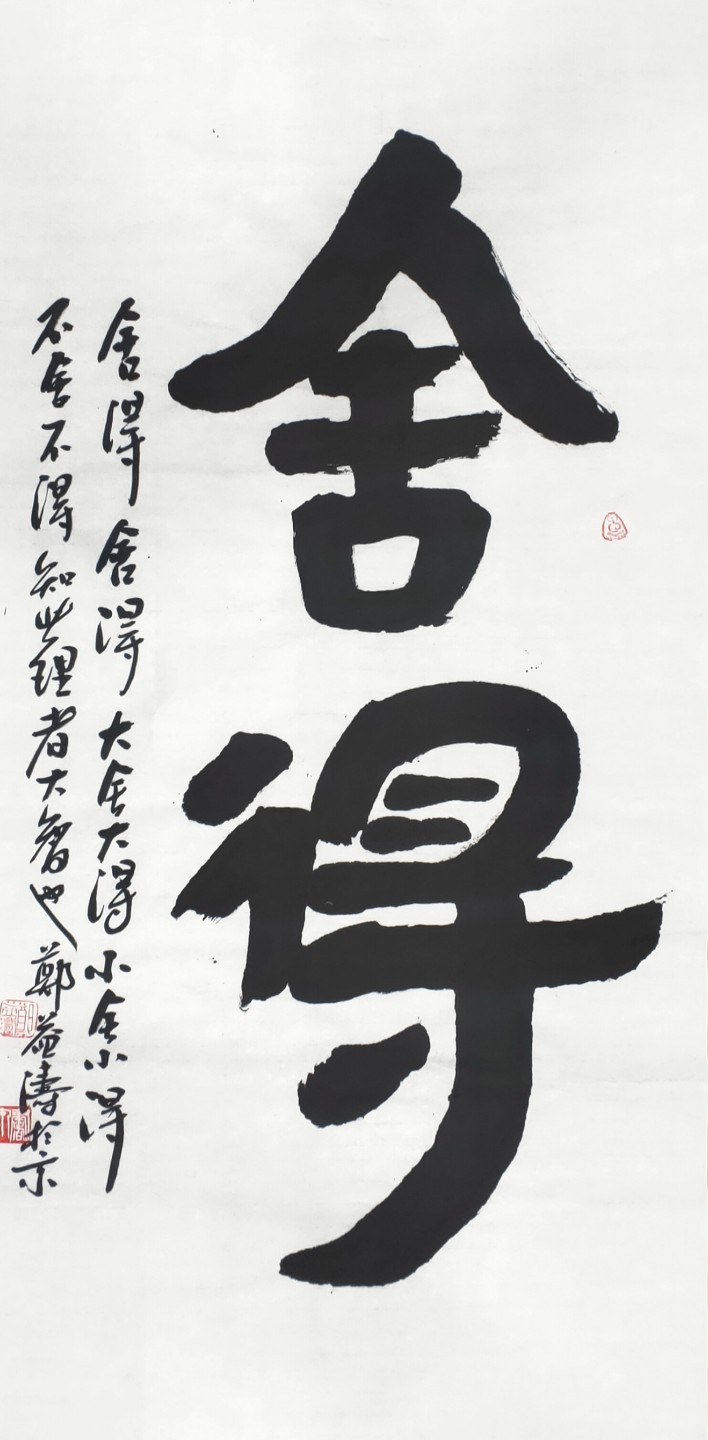 舍得
舍得舍得大舍大得小舍小得
不舍不得知此理者大智也鄭益濤於京